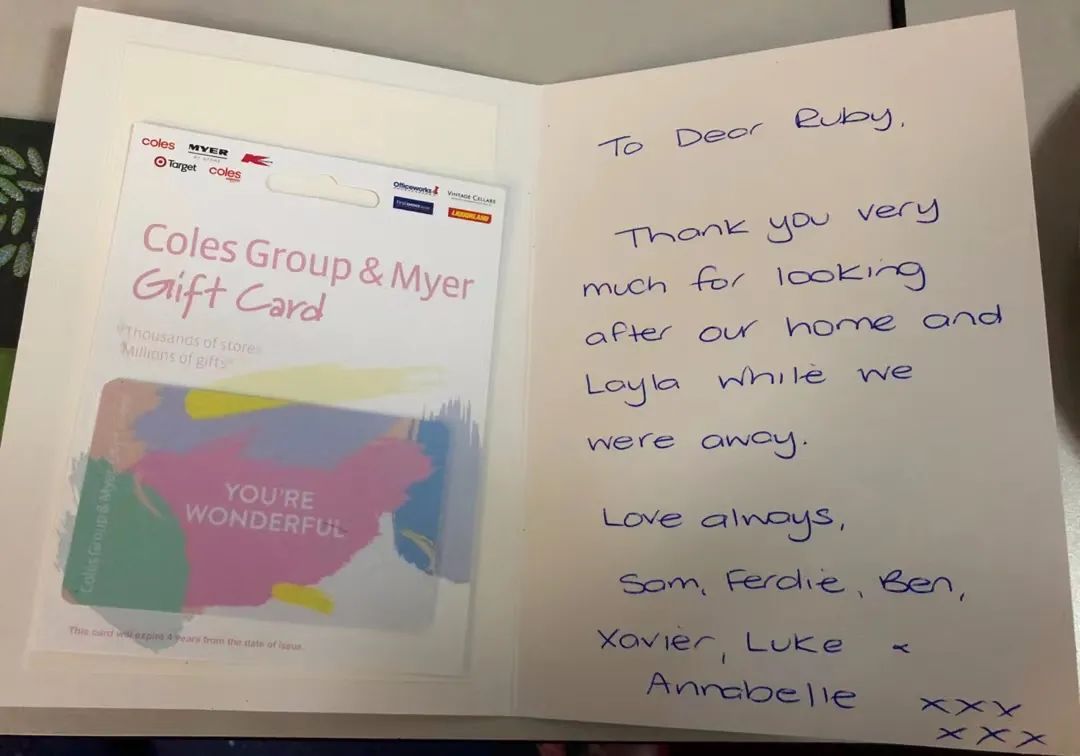 coles MYER
Target coles
Officeworks VINTAGE CELLARS
LIQUORLAND
Coles Group & Myer
Gift Card
"Thousands of stores
Millions of gifts"
Coles Group & Myer
YOU'RE
WONDERFUL
This card will expire 4 years from the date of issue.
To Dear Ruby,
Thank you very
much for looking
after our home and
Layla while we
were away.
Love always,
Sam, Ferdie, Ben,
Xavier, Luke &
Annabelle xxx
xxx